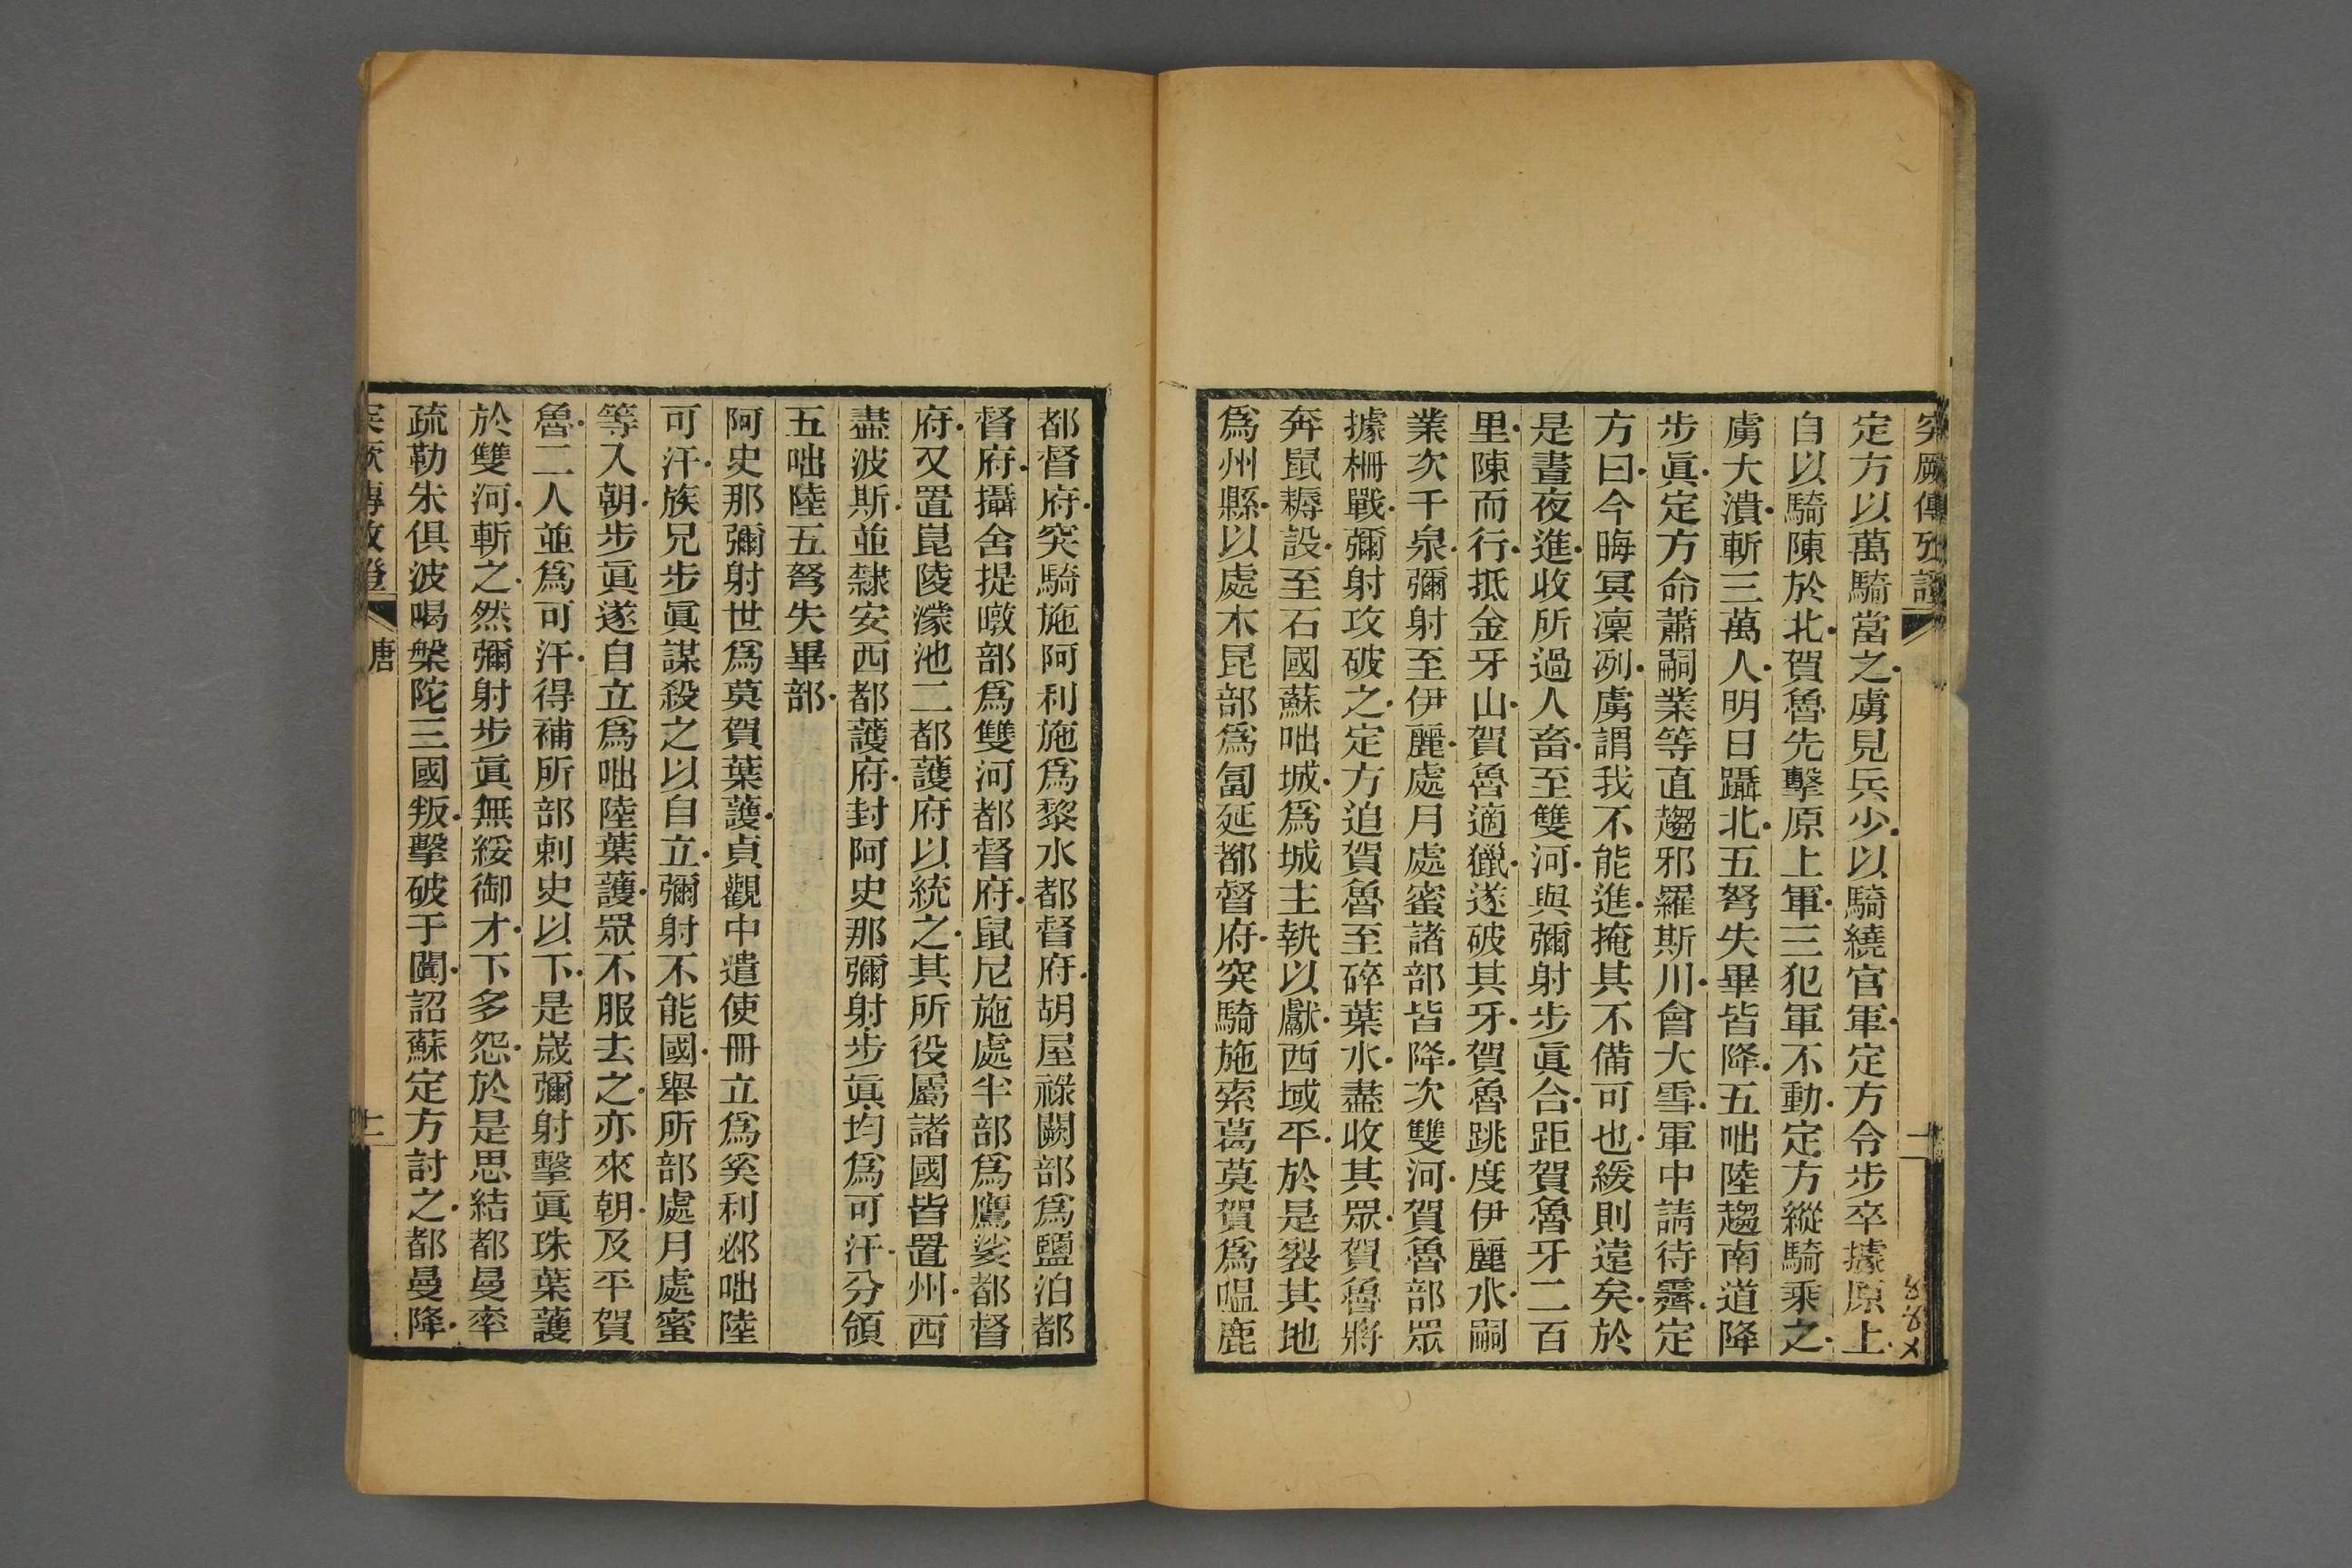 突厥傳攷證
二
定方以萬騎當之虜見兵少以騎繞官軍定方令步卒據原上
自以騎陳於北賀魯先擊原上軍三犯軍不動定方縱騎乘之
虜大潰斬三萬人明日躡北五弩失畢皆降五咄陸趨南道降
步眞定方命蕭嗣業等直趨邪羅斯川會大雪軍中請待霽定
方曰今晦冥凜冽虜謂我不能進掩其不備可也緩則遠矣於
是晝夜進收所過人畜至雙河與彌射步眞合距賀魯牙二百
里陳而行抵金牙山賀魯適獵遂破其牙賀魯跳度伊麗水嗣
業次千泉彌射至伊麗處月處蜜諸部皆降次雙河賀魯部眾
據柵戰彌射攻破之定方追賀魯至碎葉水盡收其眾賀魯將
奔鼠耨設至石國蘇咄城爲城主執以獻西域平於是裂其地
爲州縣以處木昆部爲匐延都督府突騎施索葛莫賀爲嗢鹿
都督府突騎施阿利施爲黎水都督府胡屋祿闕部爲鹽泊都
督府攝舍提暾部爲雙河都督府鼠尼施處半部爲鷹娑都督
府又置崑陵濛池二都護府以統之其所役屬諸國皆置州西
盡波斯並隸安西都護府封阿史那彌射步眞均爲可汗分領
五咄陸五弩失畢部
阿史那彌射世爲莫賀葉護貞觀中遣使冊立爲奚利邲咄陸
可汗族兄步眞謀殺之以自立彌射不能國舉所部處月處蜜
等入朝步眞遂自立爲咄陸葉護眾不服去之亦來朝及平賀
魯二人並爲可汗得補所部刺史以下是歲彌射擊眞珠葉護
於雙河斬之然彌射步眞無綏御才下多怨於是思結都曼率
疏勒朱俱波喝槃陀三國叛擊破于闐詔蘇定方討之都曼降
突厥傳攷證
唐
二